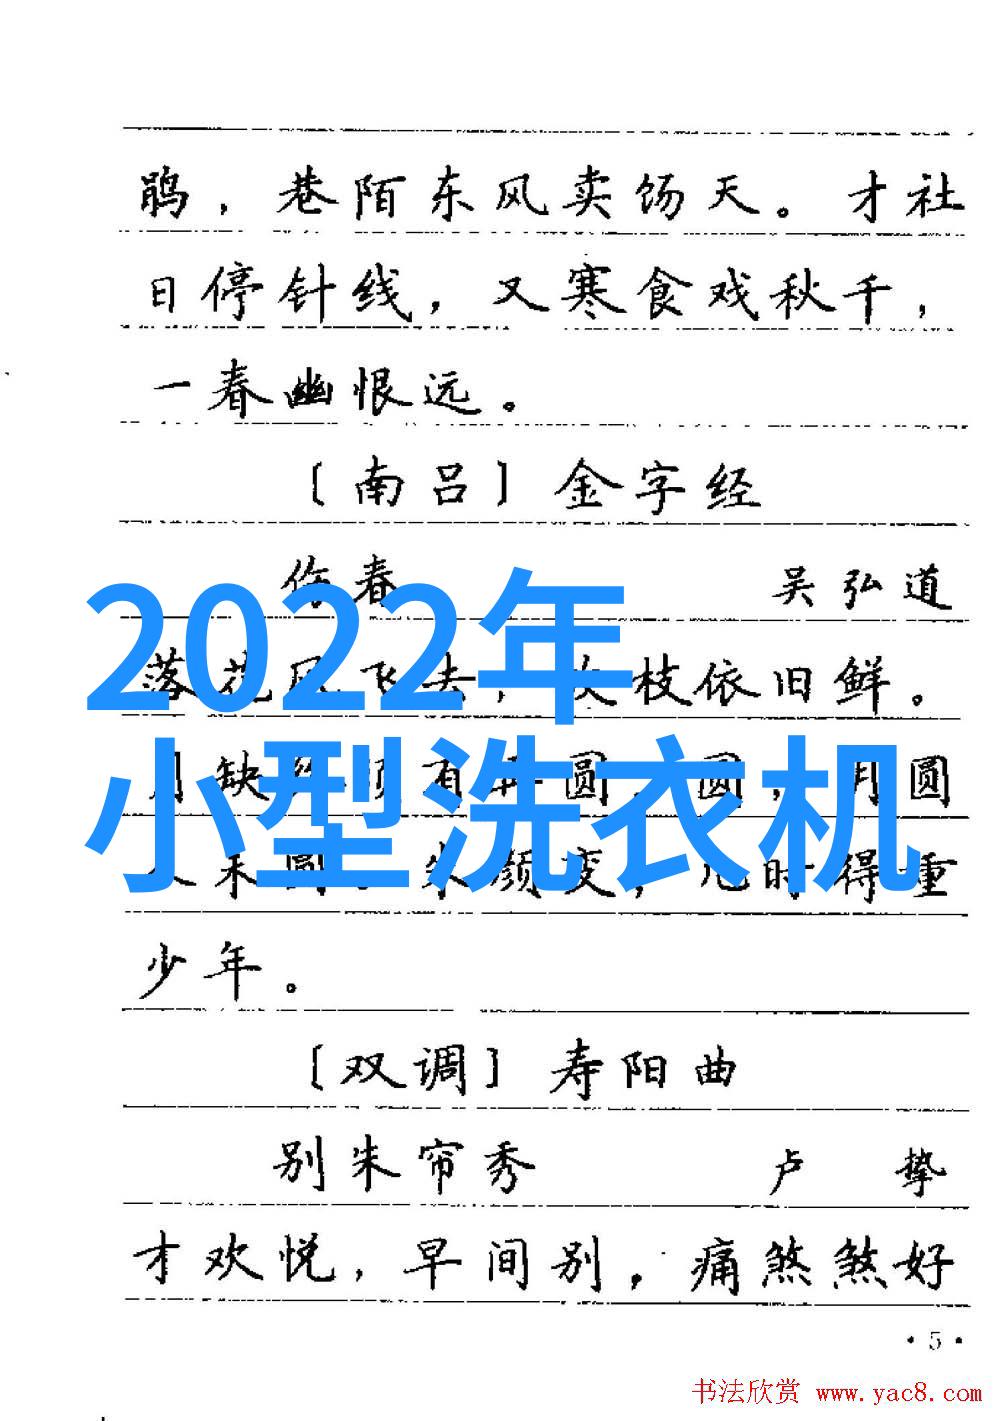 鹃，巷陌东风卖饧天。才社
日停针线，又寒食戏秋千，
一春幽恨远。
〔南吕〕金字经
伤春 吴弘道
落花风飞去，故枝依旧鲜。
月缺终须有再圆。圆，月圆
人未圆。朱颜变，几时得重
少年。
〔双调〕寿阳曲
别朱帘秀 卢挚
才欢悦，早间别，痛煞煞好
·5·
2022年
小型洗衣机
书法欣赏 www.yac8.com